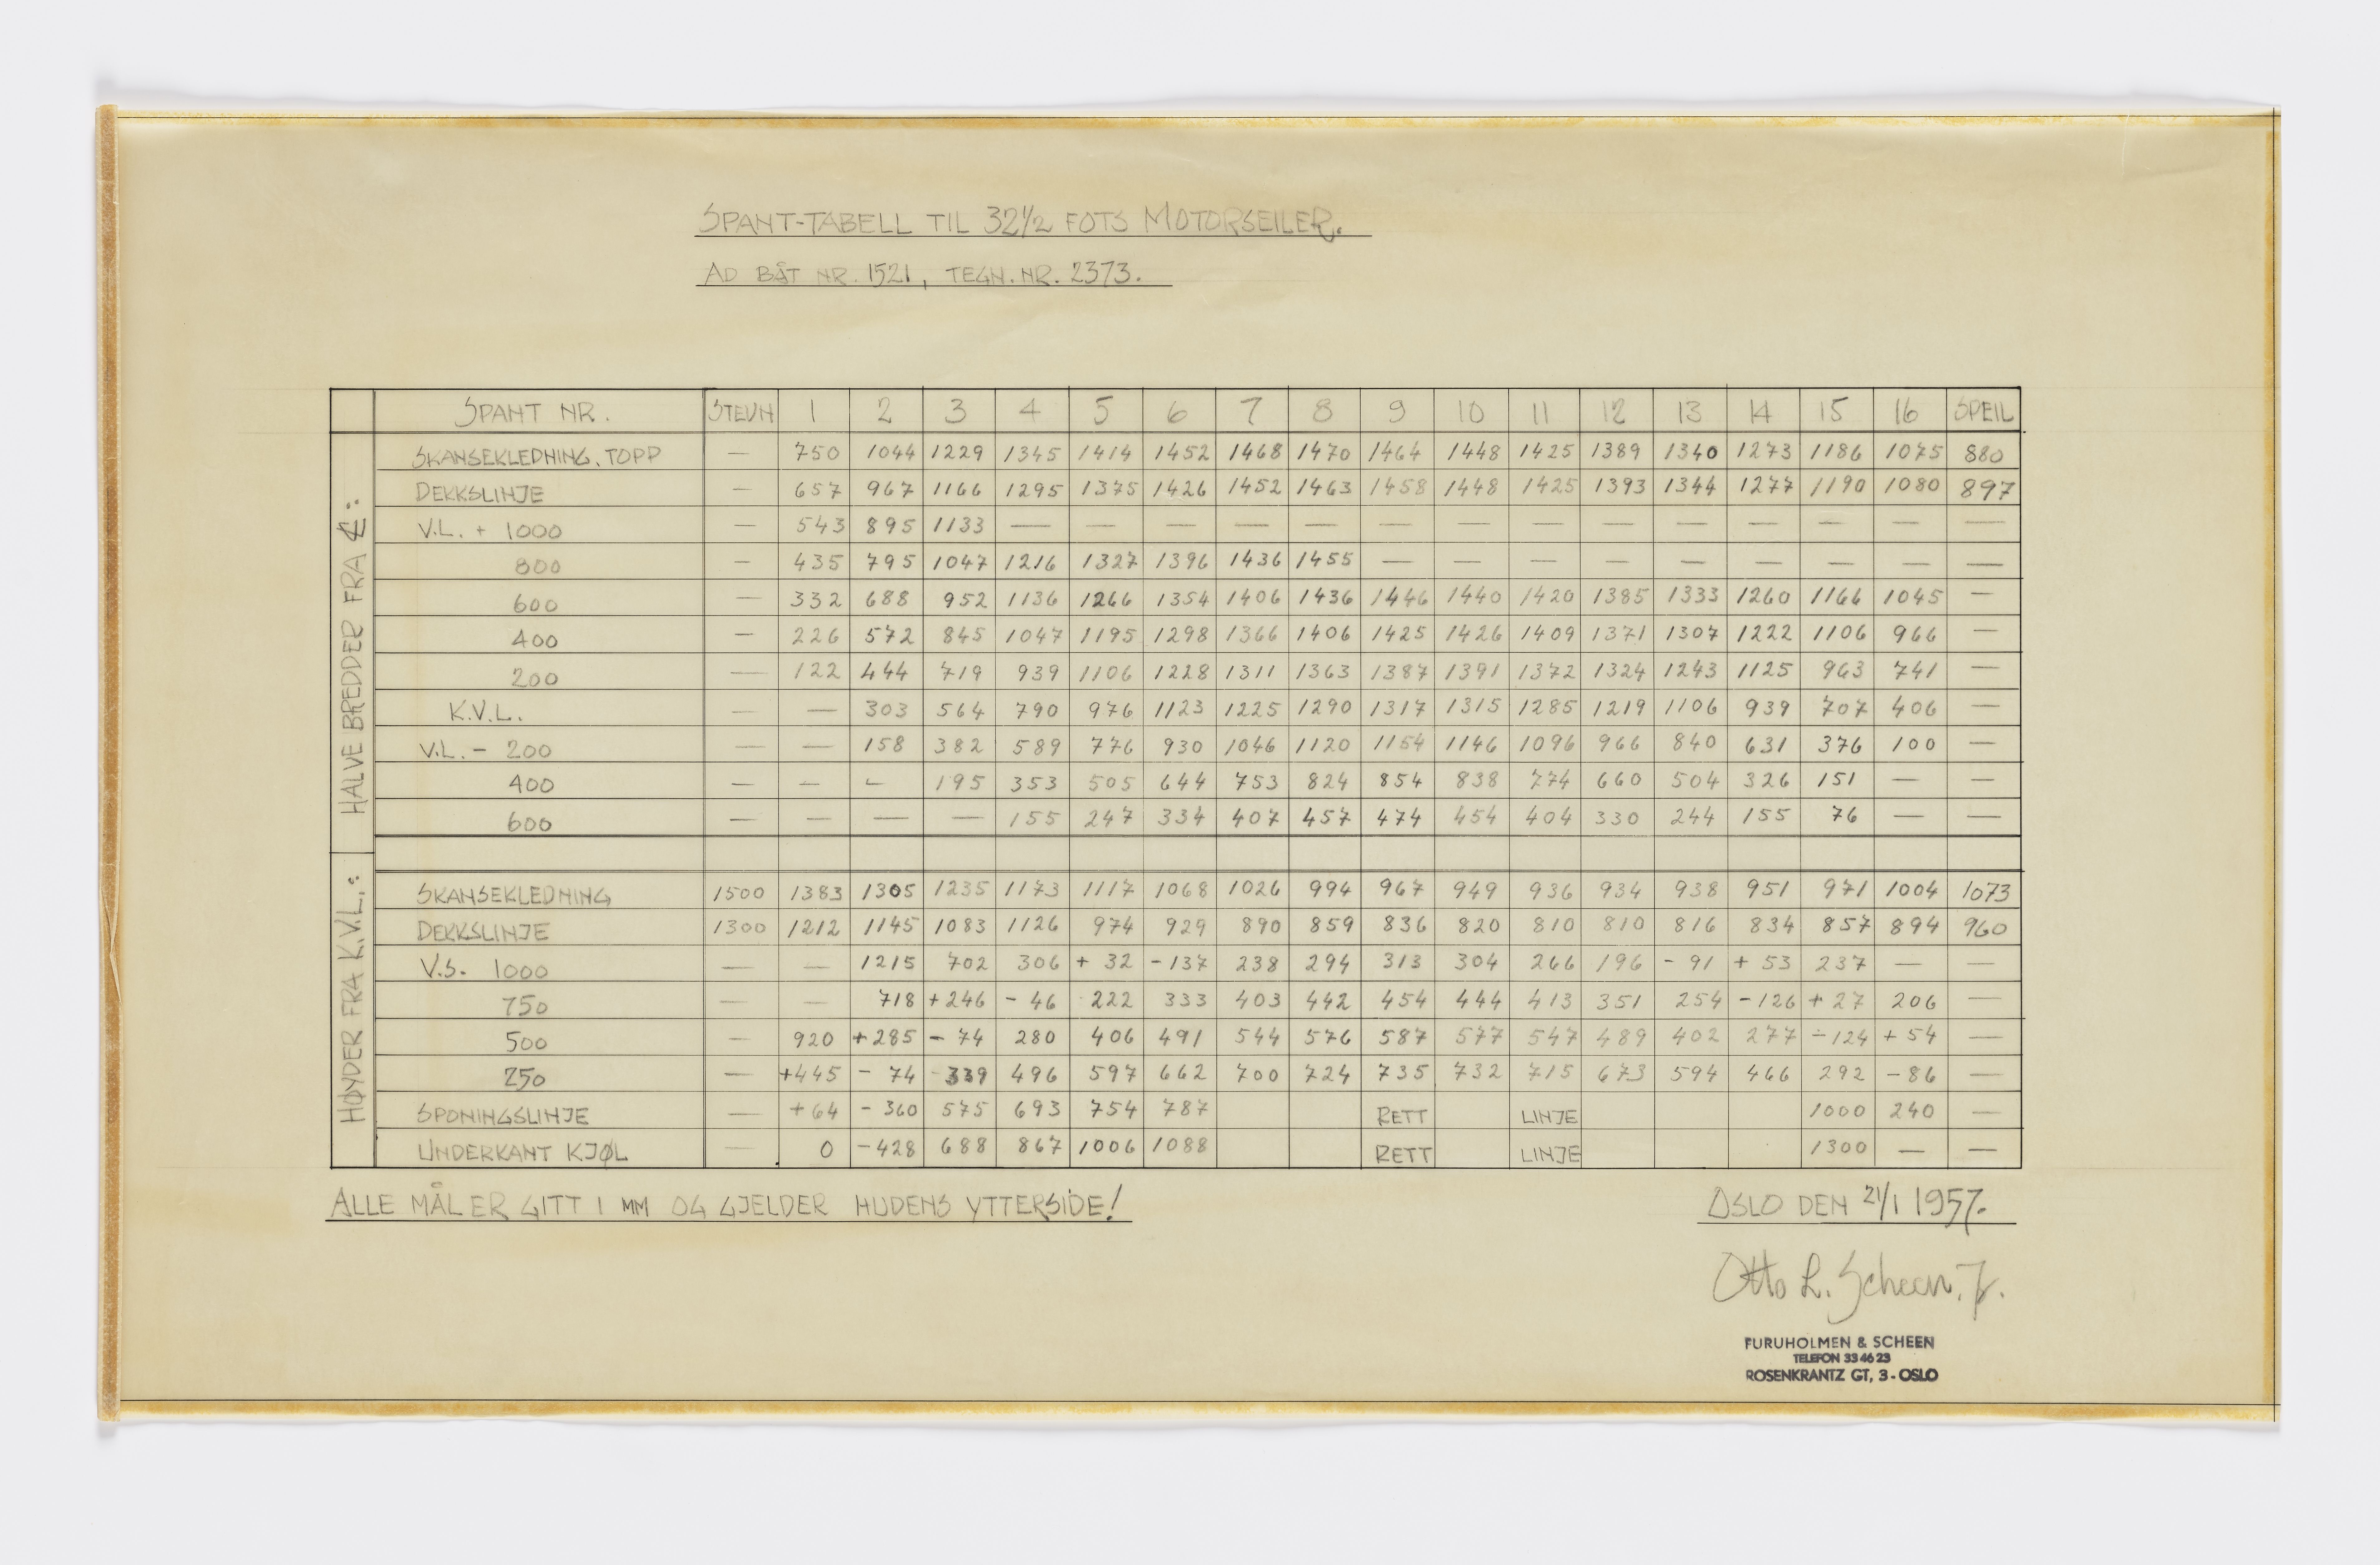 SPANT-TABELL TIL 32½ FOTS MOTORSEILER.
AD BÅT NR. 1521, TEGN. NR. 2373.
SPANT NR. STEVN 1 2 3 4 5 6 7 8 9 10 11 12 13 14 15 16 SPEIL
HALVE BREDDER FRA ℄:
SKANSEKLEDNING. TOPP — 750 1044 1229 1345 1414 1452 1468 1470 1464 1448 1425 1389 1340 1273 1186 1075 880
DEKKSLINJE — 657 967 1166 1295 1375 1426 1452 1463 1458 1448 1425 1393 1344 1277 1190 1080 897
V.L. + 1000 — 543 895 1133 — — — — — — — — — — — — — —
800 — 435 795 1047 1216 1327 1396 1436 1455 — — — — — — — — —
600 — 332 688 952 1136 1266 1354 1406 1436 1446 1440 1420 1385 1333 1260 1166 1045 —
400 — 226 572 845 1047 1195 1298 1366 1406 1425 1426 1409 1371 1307 1222 1106 966 —
200 — 122 444 719 939 1106 1228 1311 1363 1387 1391 1372 1324 1243 1125 963 741 —
K.V.L. — — 303 564 790 976 1123 1225 1290 1317 1315 1285 1219 1106 939 707 406 —
V.L. - 200 — — 158 382 589 776 930 1046 1120 1154 1146 1096 966 840 631 376 100 —
400 — — — 195 353 505 644 753 824 854 838 774 660 504 326 151 — —
600 — — — — 155 247 334 407 457 474 454 404 330 244 155 76 — —
HØYDER FRA K.V.L.:
SKANSEKLEDNING 1500 1383 1305 1235 1173 1117 1068 1026 994 967 949 936 934 938 951 971 1004 1073
DEKKSLINJE 1300 1212 1145 1083 1126 974 929 890 859 836 820 810 810 816 834 857 894 960
V.S. 1000 — — 1215 702 306 + 32 - 137 238 294 313 304 266 196 - 91 + 53 237 — —
750 — — 718 + 246 - 46 222 333 403 442 454 444 413 351 254 - 126 + 27 206 —
500 — 920 + 285 - 74 280 406 491 544 576 587 577 547 489 402 277 ÷ 124 + 54 —
250 — +445 - 74 - 339 496 597 662 700 724 735 732 715 673 594 466 292 - 86 —
SPONINGSLINJE — + 64 - 360 575 693 754 787 RETT LINJE 1000 240 —
UNDERKANT KJØL — 0 - 428 688 867 1006 1088 RETT LINJE 1300 — —
ALLE MÅL ER GITT I MM OG GJELDER HUDENS YTTERSIDE!
OSLO DEN 21/1 1957.
Otto L. Scheen. Jr.
FURUHOLMEN & SCHEEN
TELEFON 33 46 23
ROSENKRANTZ GT, 3 - OSLO